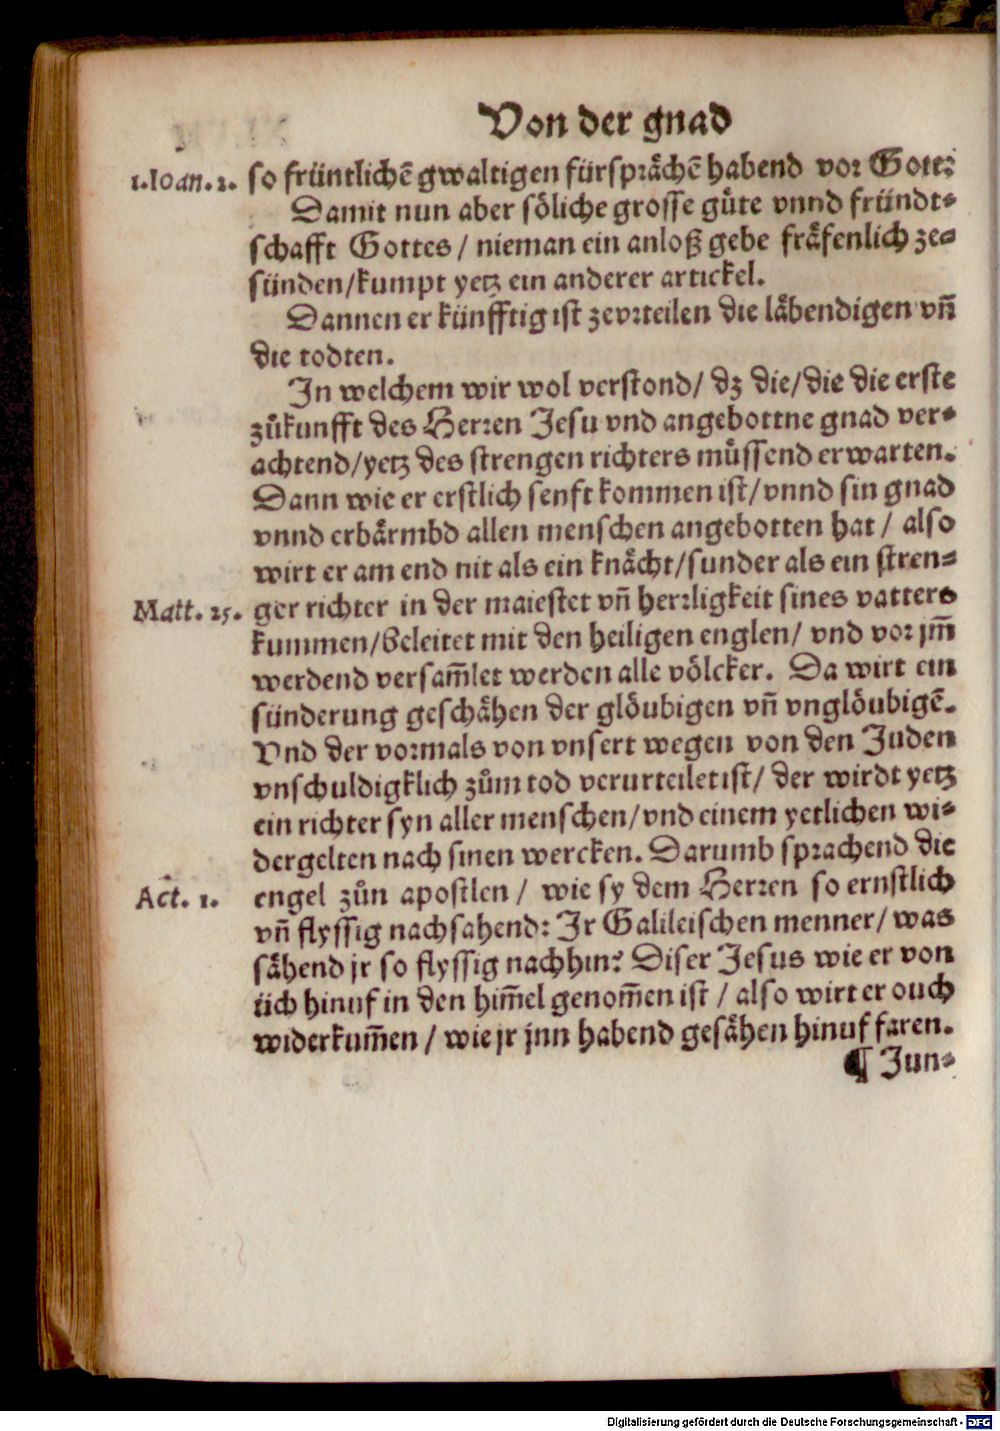 Von der gnad
1.Ioan.2. so früntlichē gwaltigen fürsprächē habend vor Gott?
Damit nun aber söliche grosse güte vnnd fründt-
schafft Gottes / nieman ein anloß gebe fräfenlich ze-
sünden/kumpt yetz ein anderer artickel.
Dannen er künfftig ist zevrteilen die läbendigen vñ
die todten.
In welchem wir wol verstond/ dz die/die die erste
zůkunfft des Herren Jesu vnd angebottne gnad ver-
achtend/yetz des strengen richters müssend erwarten.
Dann wie er erstlich senft kommen ist/vnnd sin gnad
vnnd erbärmbd allen menschen angebotten hat / also
wirt er am end nit als ein knächt/sunder als ein stren-
Matt. 25. ger richter in der maiestet vñ herrligkeit sines vatters
kummen/beleitet mit den heiligen englen/ vnd vor jm̄
werdend versam̄let werden alle völcker. Da wirt ein
sünderung geschähen der glöubigen vñ vnglöubigē.
Vnd der vormals von vnsert wegen von den Juden
vnschuldigklich zům tod verurteilet ist/ der wirdt yetz
ein richter syn aller menschen/vnd einem yetlichen wi-
dergelten nach sinen wercken. Darumb sprachend die
Act. 1. engel zůn apostlen / wie sy dem Herren so ernstlich
vñ flyssig nachsahend: Ir Galileischen menner/ was
sähend jr so flyssig nachhin? Diser Jesus wie er von
üch hinuf in den him̄el genom̄en ist / also wirt er ouch
widerkum̄en / wie jr jnn habend gesähen hinuf faren.
¶ Jun-
Digitalisierung gefördert durch die Deutsche Forschungsgemeinschaft - DFG